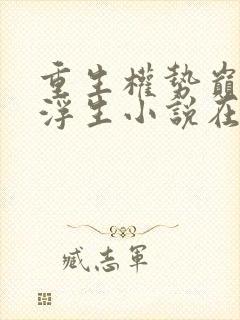 重生權勢巔
浮生小說在
臧志軍